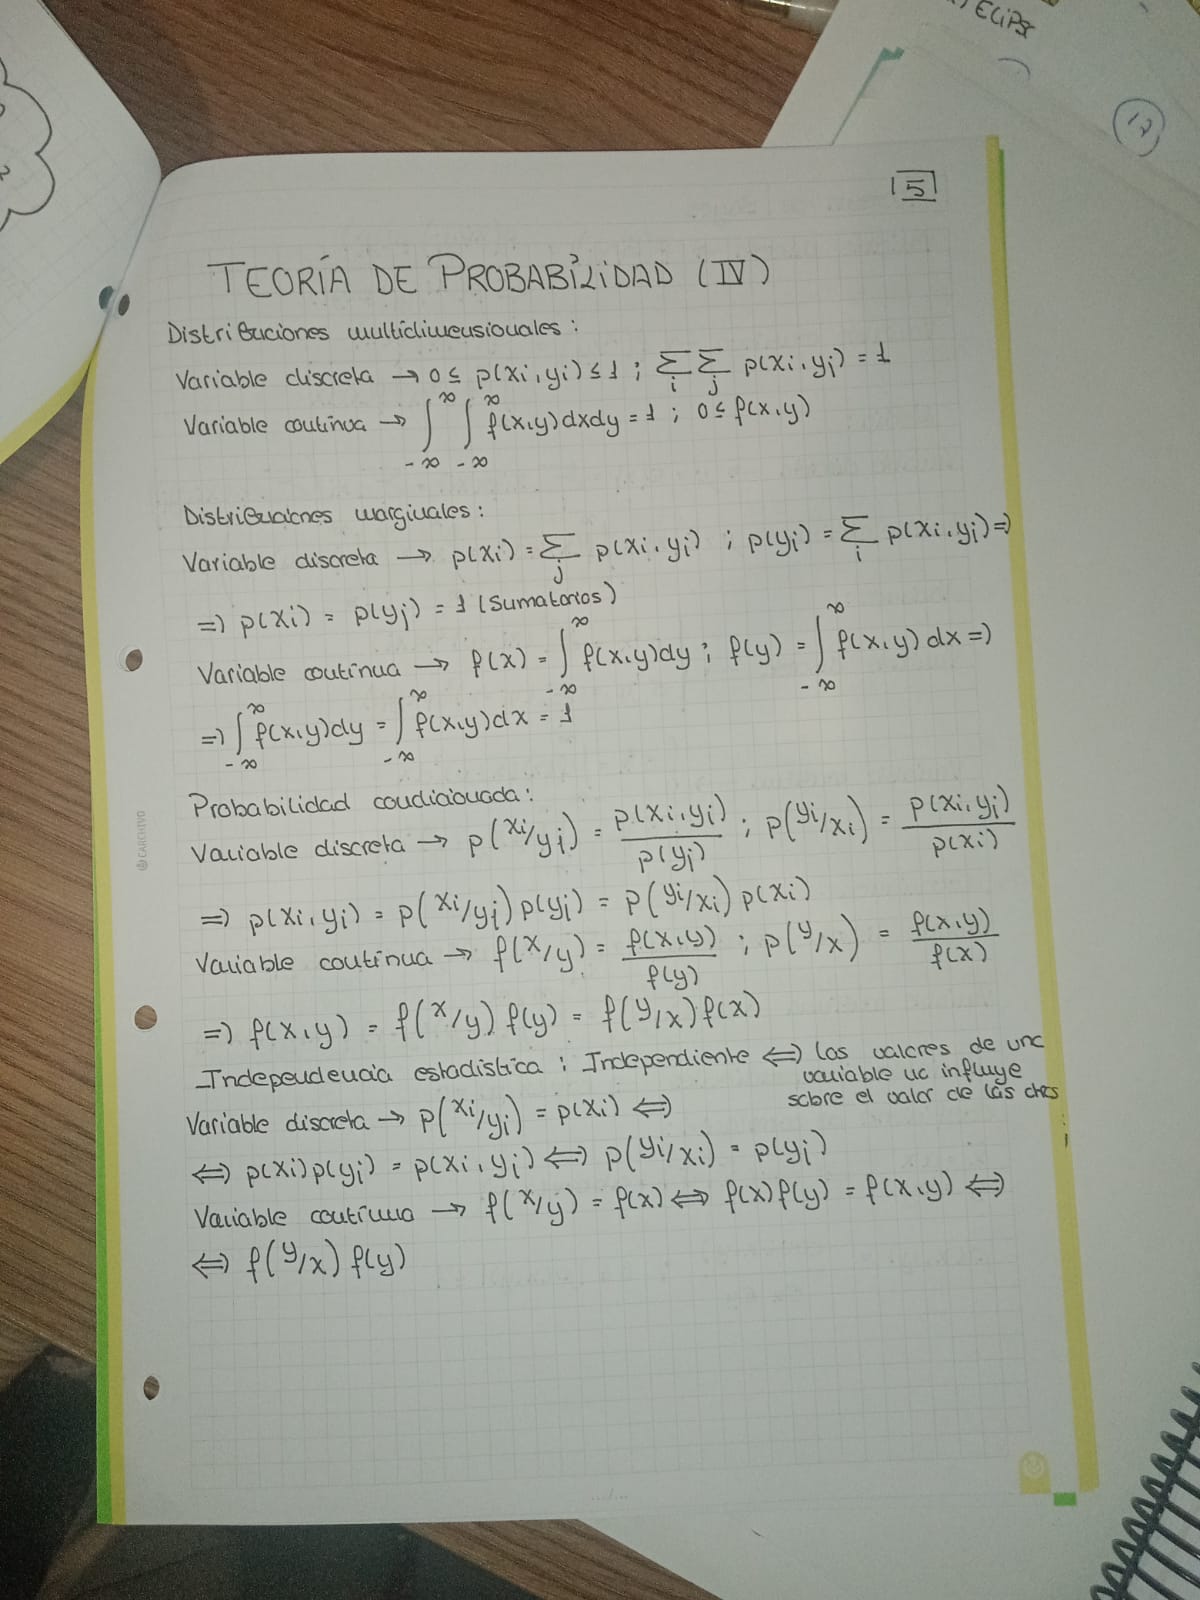 ECliPS
17
5
TEORÍA DE PROBABILIDAD (IV)
Distribuciones multidimensionales:
Variable discreta → 0 ≤ p(xi, yj) ≤ 1 ; ∑i ∑j p(xi, yj) = 1
Variable continua → ∫_{-∞}^{∞} ∫_{-∞}^{∞} f(x,y)dxdy = 1 ; 0 ≤ f(x,y)
Distribuciones marginales:
Variable discreta → p(xi) = ∑j p(xi, yj) ; p(yj) = ∑i p(xi, yj) ⇒
⇒ p(xi) = p(yj) = 1 (Sumatorios)
Variable continua → f(x) = ∫_{-∞}^{∞} f(x,y)dy ; f(y) = ∫_{-∞}^{∞} f(x,y)dx ⇒
⇒ ∫_{-∞}^{∞} f(x,y)dy = ∫_{-∞}^{∞} f(x,y)dx = 1
Probabilidad condicionada:
Variable discreta → p(xi/yj) = p(xi, yj)/p(yj) ; p(yj/xi) = p(xi, yj)/p(xi)
⇒ p(xi, yj) = p(xi/yj) p(yj) = p(yj/xi) p(xi)
Variable continua → f(x/y) = f(x,y)/f(y) ; p(y/x) = f(x,y)/f(x)
⇒ f(x,y) = f(x/y) f(y) = f(y/x) f(x)
Independencia estadística : Independiente ⇔ los valores de una
variable no influye
sobre el valor de las otras
Variable discreta → p(xi/yj) = p(xi) ⇔
⇔ p(xi)p(yj) = p(xi, yj) ⇔ p(yj/xi) = p(yj)
Variable continua → f(x/y) = f(x) ⇔ f(x)f(y) = f(x,y) ⇔
⇔ f(y/x) f(y)
CARCHIVO